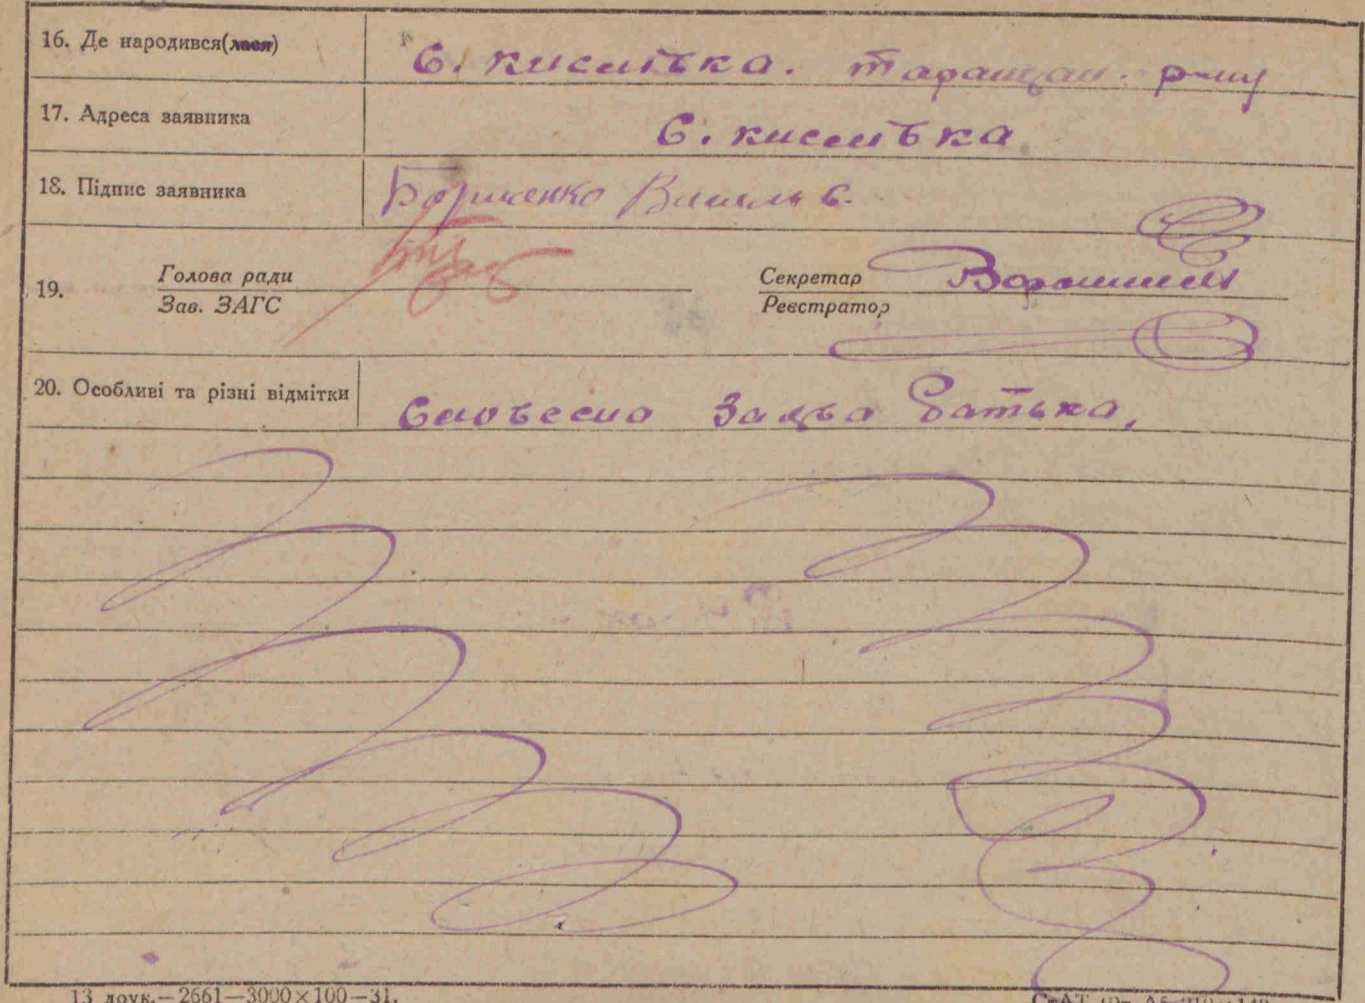 16. Де народився(лася) с. кислівка. таращан. р-ну
17. Адреса заявника с. кислівка
18. Підпис заявника Борщенко Василь С.
19. Голова ради
Зав. ЗАГС
Секретар
Реєстратор
20. Особливі та різні відмітки Словесна заява батька.
13 друк.—2661—3000×100—31.